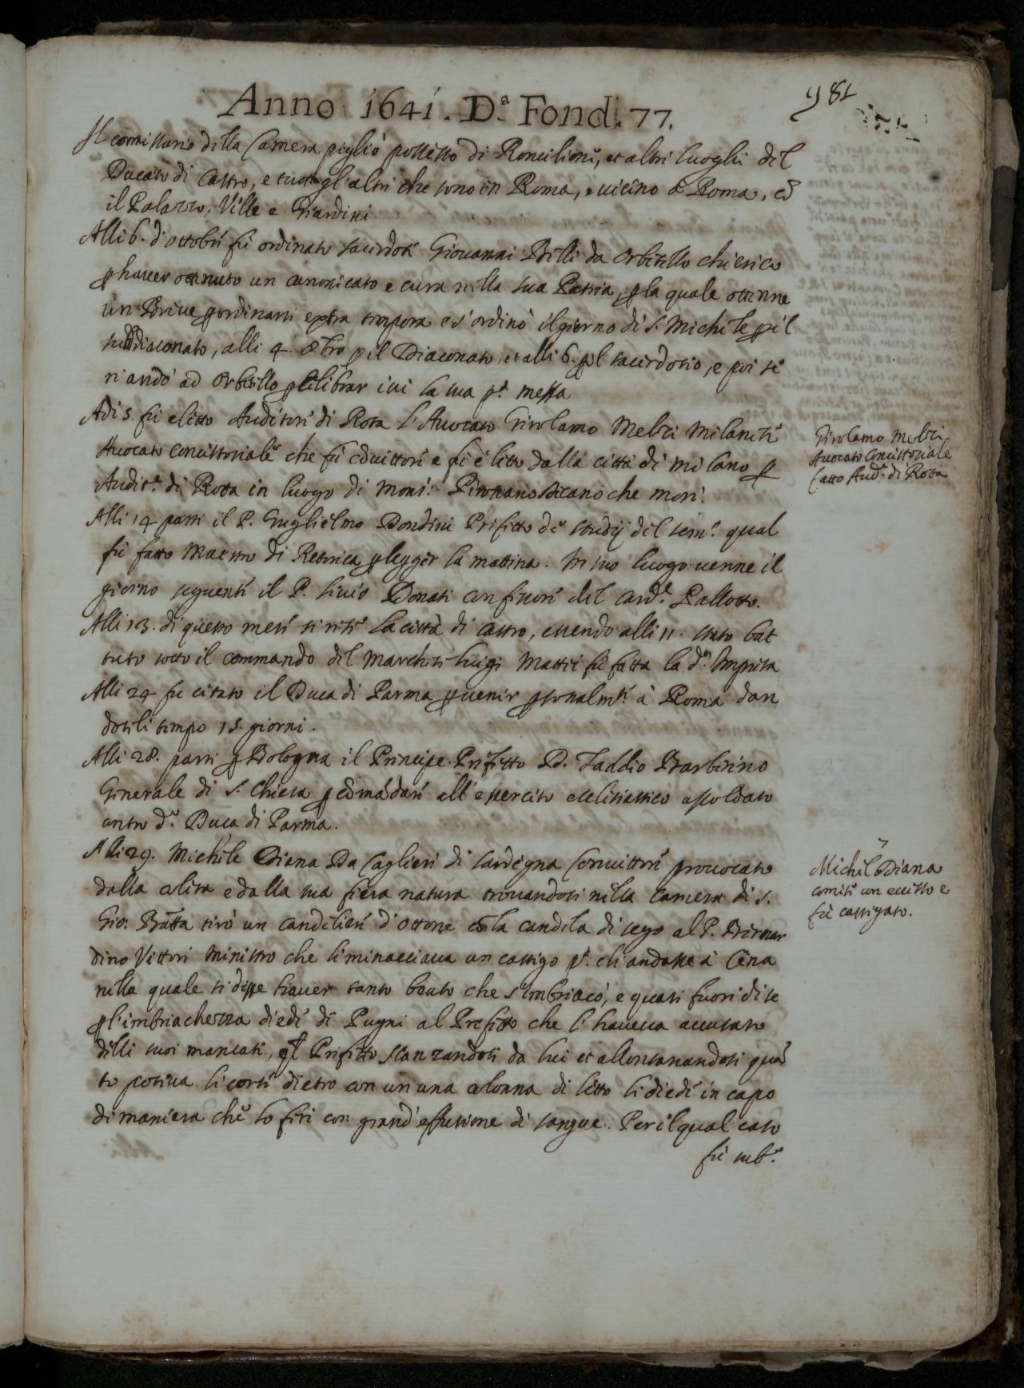 Anno 1641. D.ª Fond. 77.
981
Il comissario della Camera pigliò possesso di Ronciglioni, et altri luoghi del
Ducato di Castro, e tutti gl'altri che sono in Roma, e vicino à Roma, cō
il Palazzo, Ville e Giardini
Alli 6. d'ottobre fù ordinato sacerdote Giovanni Billi da Orbitello chierico
p haver ottenuto un canonicato e cura nella sua Patria, p la quale ottenne
un Breve p ordinarsi extra tempora e s'ordinò il giorno di S. Michele p il
subdiaconato, alli 4. 8bre p il Diaconato, et alli 6. p il sacerdotio, e poi se
n'andò ad Orbitello p celebrar ivi la sua pª messa
Adi 5 fù eletto Auditore di Rota l'Avocato Girolamo Melzi Milanese
Avocato concistoriale che fù cōvittore e fù eletto dalla città di Milano p
Audit.e di Rota in luogo di Mons.r che morì.
Alli 14 partì il P. Guglielmo Dondini Prefetto de studij del sem.º qual
fù fatto Maestro di Retorica p legger la mattina. In suo luogo venne il
giorno seguente il P. Livio Donati con favore del Card. Pallotto.
Alli 13. di questo mese si rese la città di Castro, essendo alli 11. stato bat
tuto sotto il commando del Marchese Luigi Mattei fù fatta la d.ª Impresa
Alli 24 fù citato il Duca di Parma p venir psonalm.te à Roma dan
doseli tempo 15. giorni.
Alli 28. partì p Bologna il Principe Prefetto D. Taddeo Barberino
Generale di S. Chiesa p cōmādare all'essercito ecclesiastico assoldato
contro d.º Duca di Parma.
Alli 29. Michele Diana Da Caglieri di Sardegna Convittore provocato
dalla colera e dalla sua fiera natura trovandosi nella Camera di S.
Gio. Batta tirò un candeliere d'ottone cō la candela di sego al P. Bernar
dino Vittori Ministro che li minacciava un castigo pª ch'andasse à Cena
nella quale si disse haver tanto beuto che s'imbriacò, e quasi fuori di se
p l'imbriachezza diede di Pugni al Prefetto che l'haveva accusato
delli suoi mancati, e'l Prefetto scanzandosi da lui et allontanandosi quā
to poteva li corse dietro con un una colonna di letto li diede in capo
di maniera che lo ferì con grand'effusione di sangue. Per il qual caso
fù sub.º
Girolamo Melzi
Avocato Concistoriale
fatto Aud.e di Rota
Michel Diana
comise un eccesso e
fù castigato.